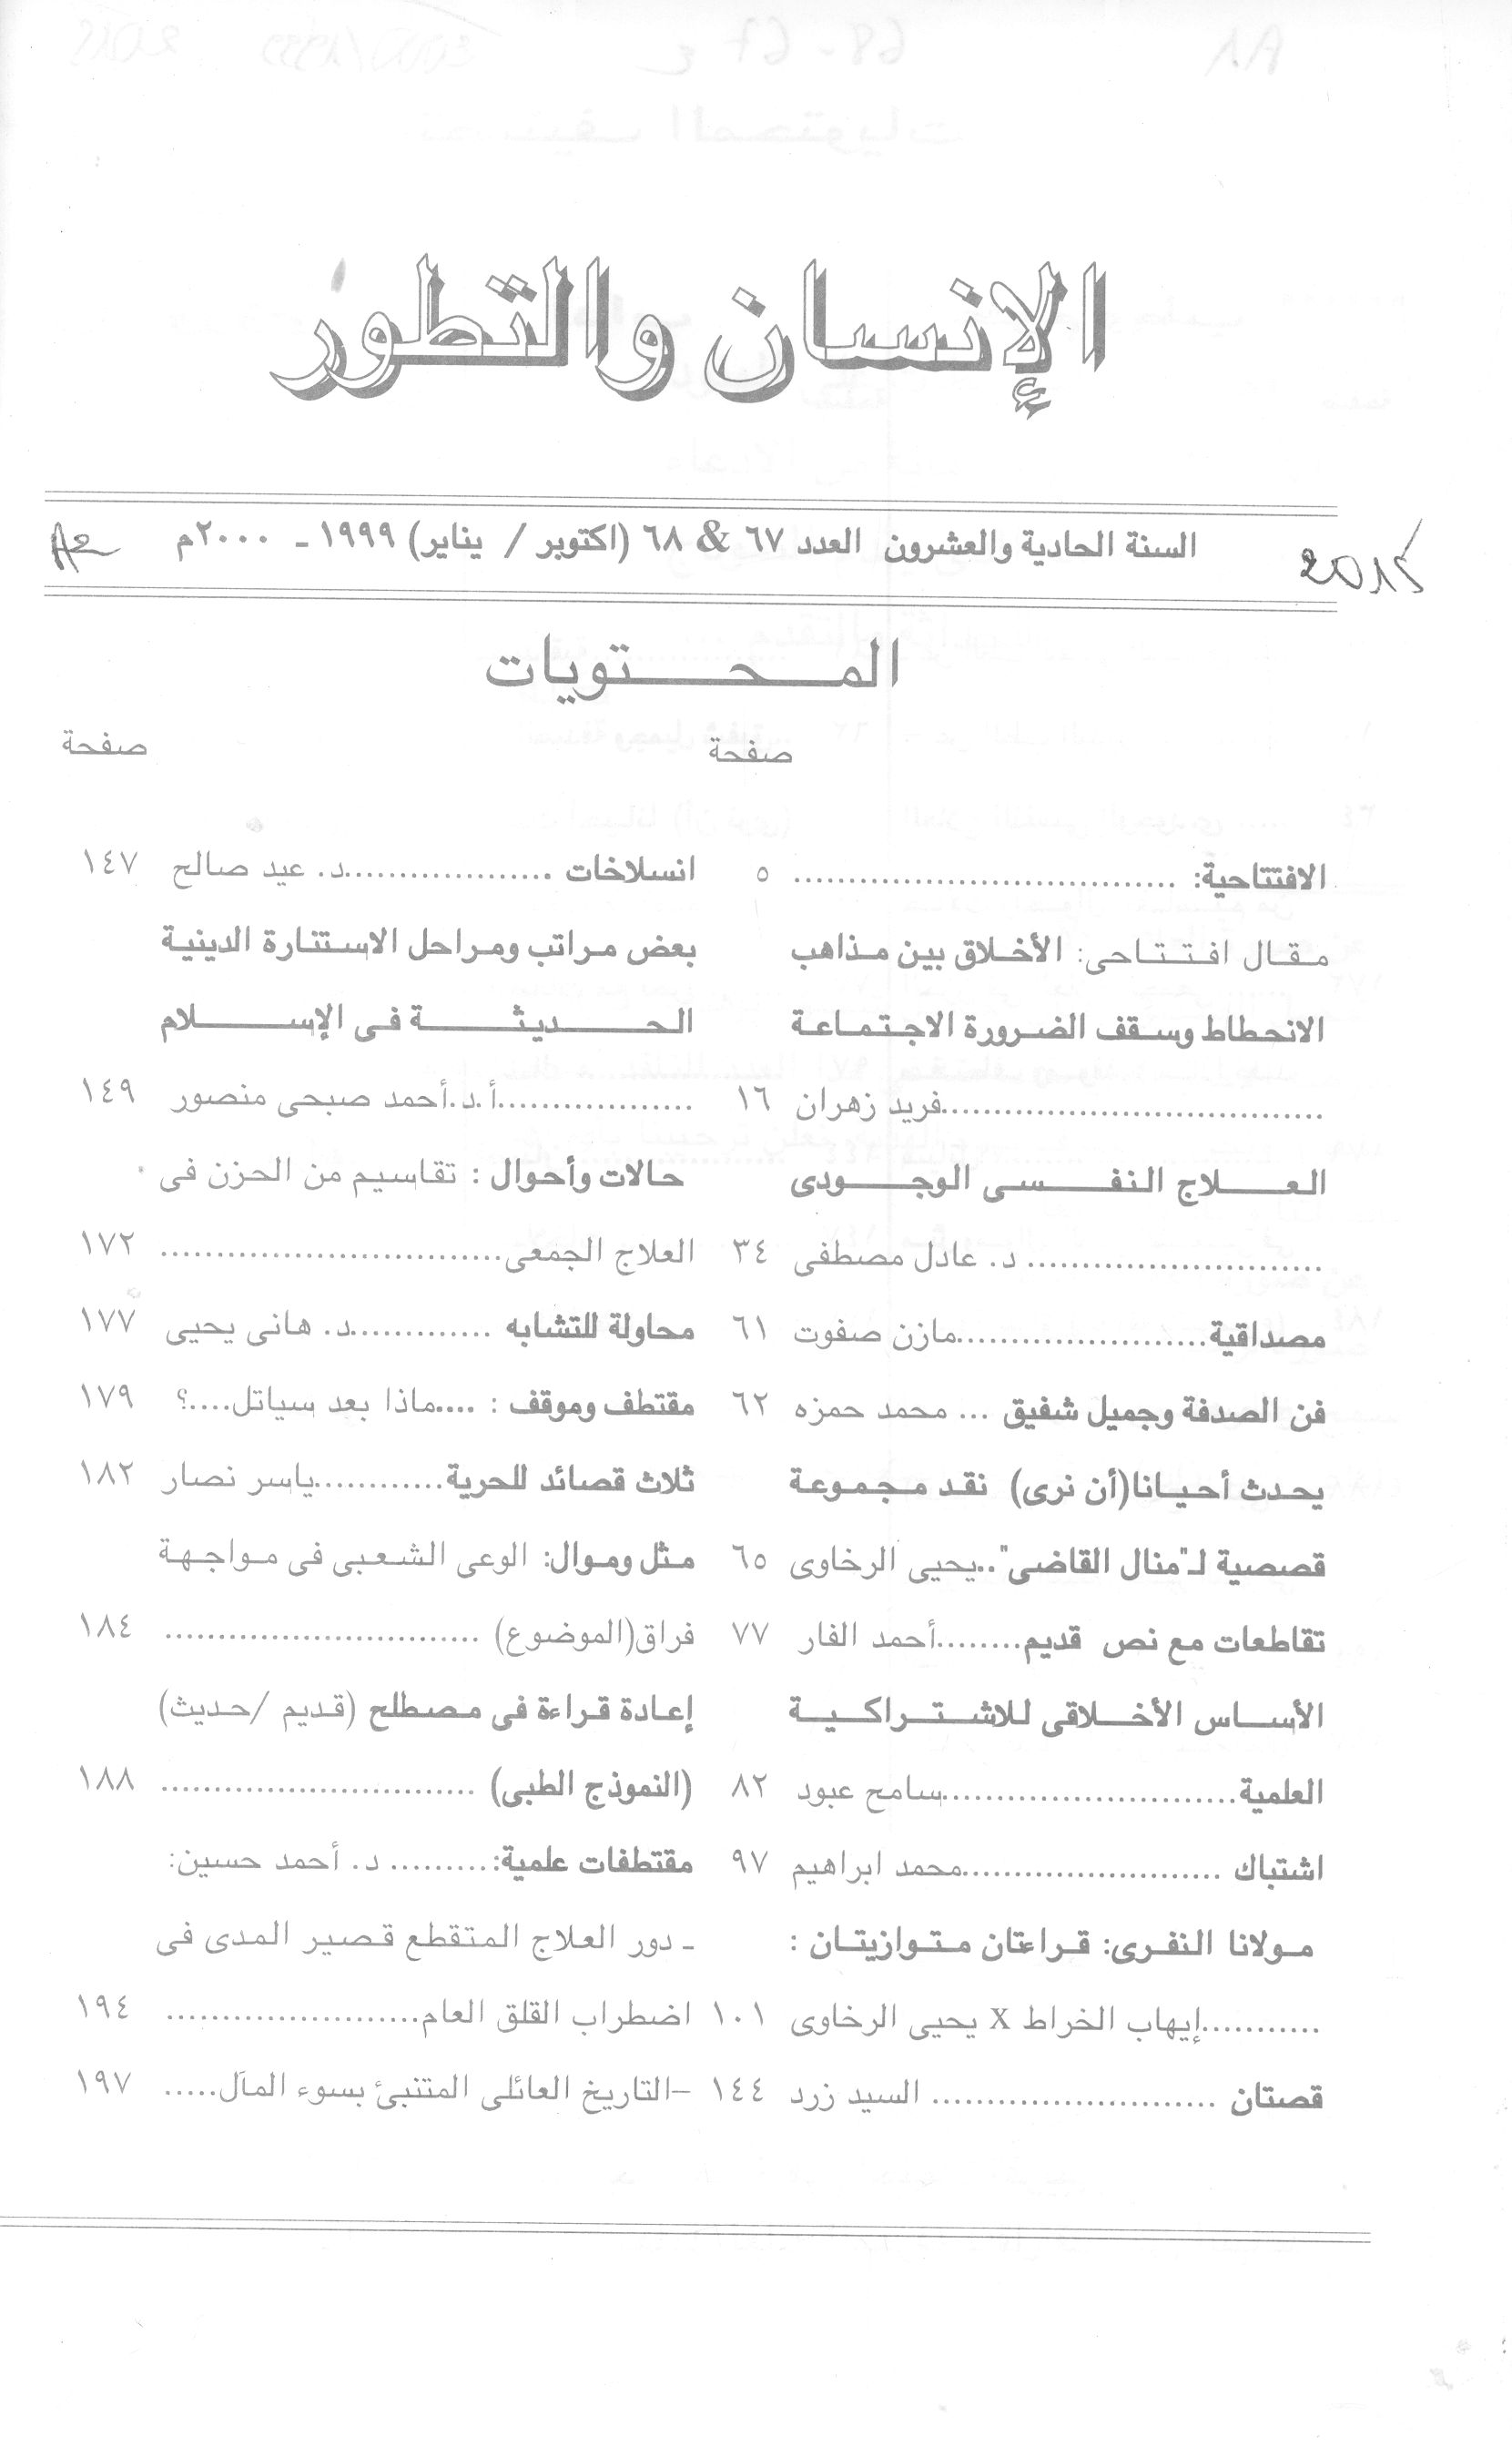 الإنسان والتطور
السنة الحادية والعشرون العدد ٦٧ & ٦٨ (اكتوبر / يناير) ١٩٩٩ ـ ٢٠٠٠م
المحتويات
صفحة
الافتتاحية: .................................... ٥
مقال افتتاحى: الأخلاق بين مذاهب
الانحطاط وسقف الضرورة الاجتماعة
....................................فريد زهران ١٦
العلاج النفسى الوجودى
............................ د. عادل مصطفى ٣٤
مصداقية........................مازن صفوت ٦١
فن الصدفة وجميل شفيق ... محمد حمزه ٦٢
يحدث أحيانا(أن نرى) نقد مجموعة
قصصية لـ"منال القاضى"..يحيى الرخاوى ٦٥
تقاطعات مع نص قديم........أحمد الفار ٧٧
الأساس الأخلاقى للاشتراكية
العلمية............................سامح عبود ٨٢
اشتباك .........................محمد ابراهيم ٩٧
مولانا النفرى: قراءتان متوازيتان :
...........إيهاب الخراط X يحيى الرخاوى ١٠١
قصتان ........................... السيد زرد ١٤٤
صفحة
انسلاخات ....................د. عيد صالح ١٤٧
بعض مراتب ومراحل الاستنارة الدينية
الحديثة فى الإسلام
...................أ.د.أحمد صبحى منصور ١٤٩
حالات وأحوال : تقاسيم من الحزن فى
العلاج الجمعى................................ ١٧٢
محاولة للتشابه .............د. هانى يحيى ١٧٧
مقتطف وموقف : ....ماذا بعد سياتل....؟ ١٧٩
ثلاث قصائد للحرية............ياسر نصار ١٨٢
مثل وموال: الوعى الشعبى فى مواجهة
فراق(الموضوع) .............................. ١٨٤
إعادة قراءة فى مصطلح (قديم /حديث)
(النموذج الطبى) .............................. ١٨٨
مقتطفات علمية:......... د. أحمد حسين:
ـ دور العلاج المتقطع قصير المدى فى
اضطراب القلق العام........................ ١٩٤
–التاريخ العائلى المتنبئ بسوء المآل..... ١٩٧